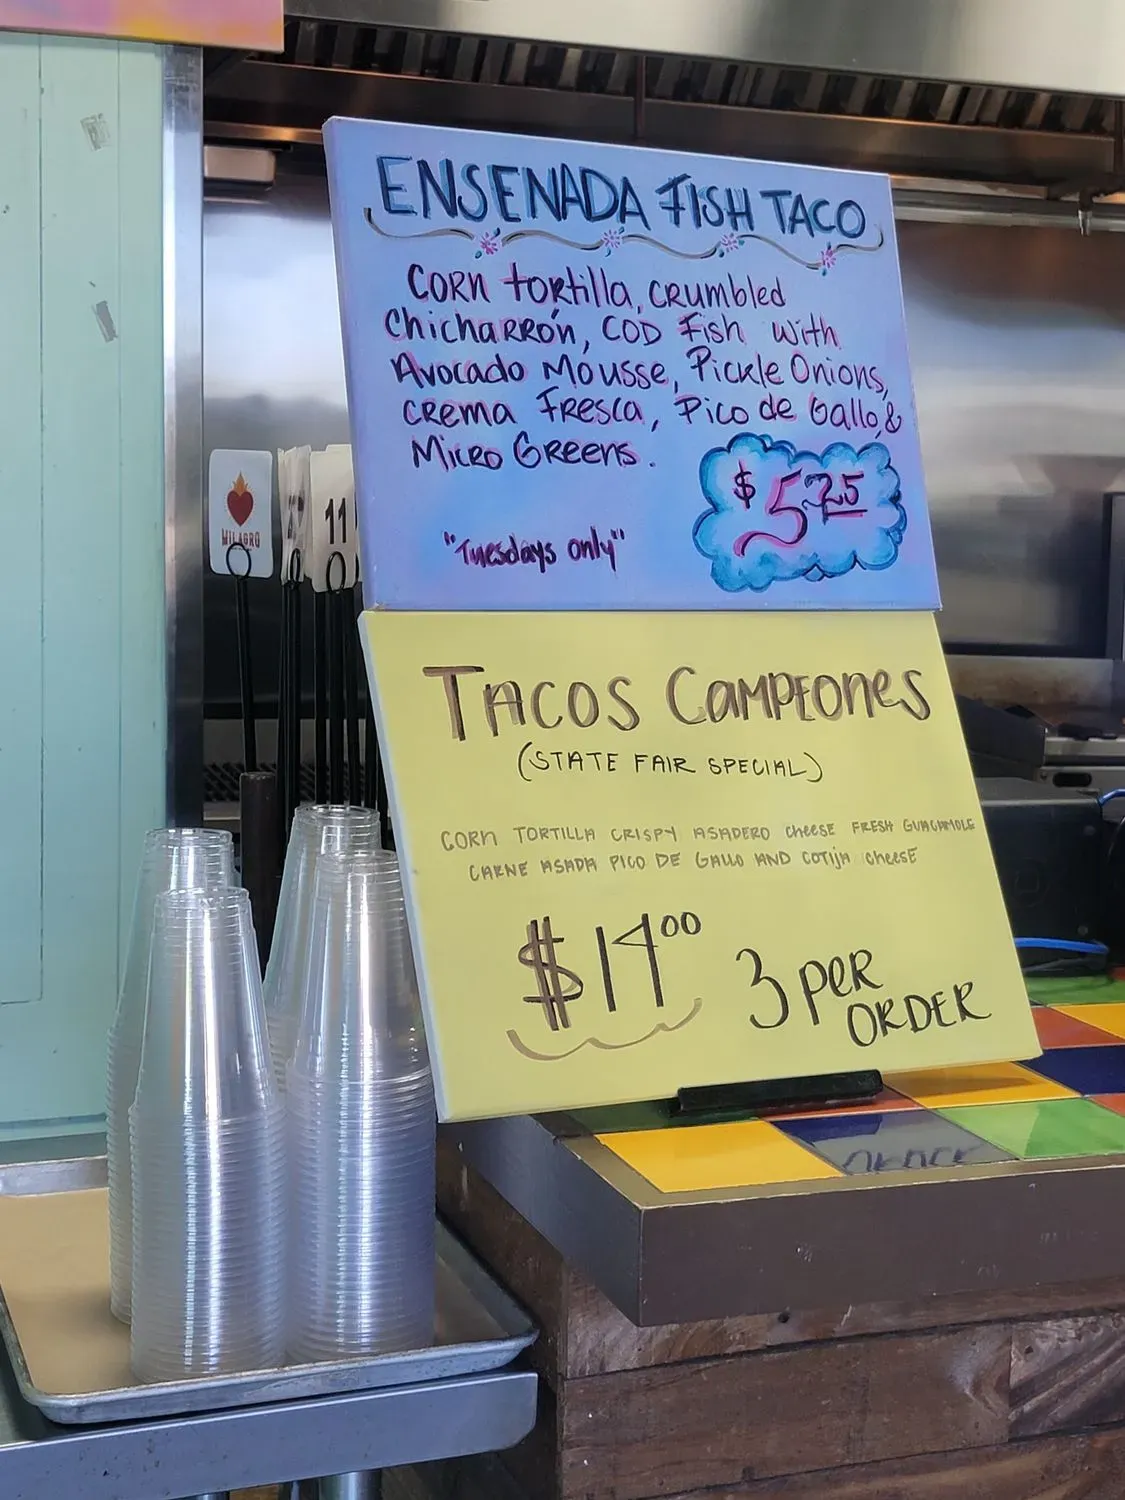 ENSENADA FISH TACO
CORN tortilla, CRUMBLED
ChicHARRóN, COD Fish with
Avocado Mousse, Pickle Onions,
CREMA FRESCA, Pico de Gallo, &
Micro Greens.
$5.25
"Tuesdays only"
MILAGRO
11
TACOS CAMPEONES
(STATE FAIR SPECIAL)
CORN TORTILLA CRISPY ASADERO CHEESE FRESH GUACAMOLE
CARNE ASADA PICO DE GALLO AND COTIJA CHEESE
$14.00
3 PER
ORDER